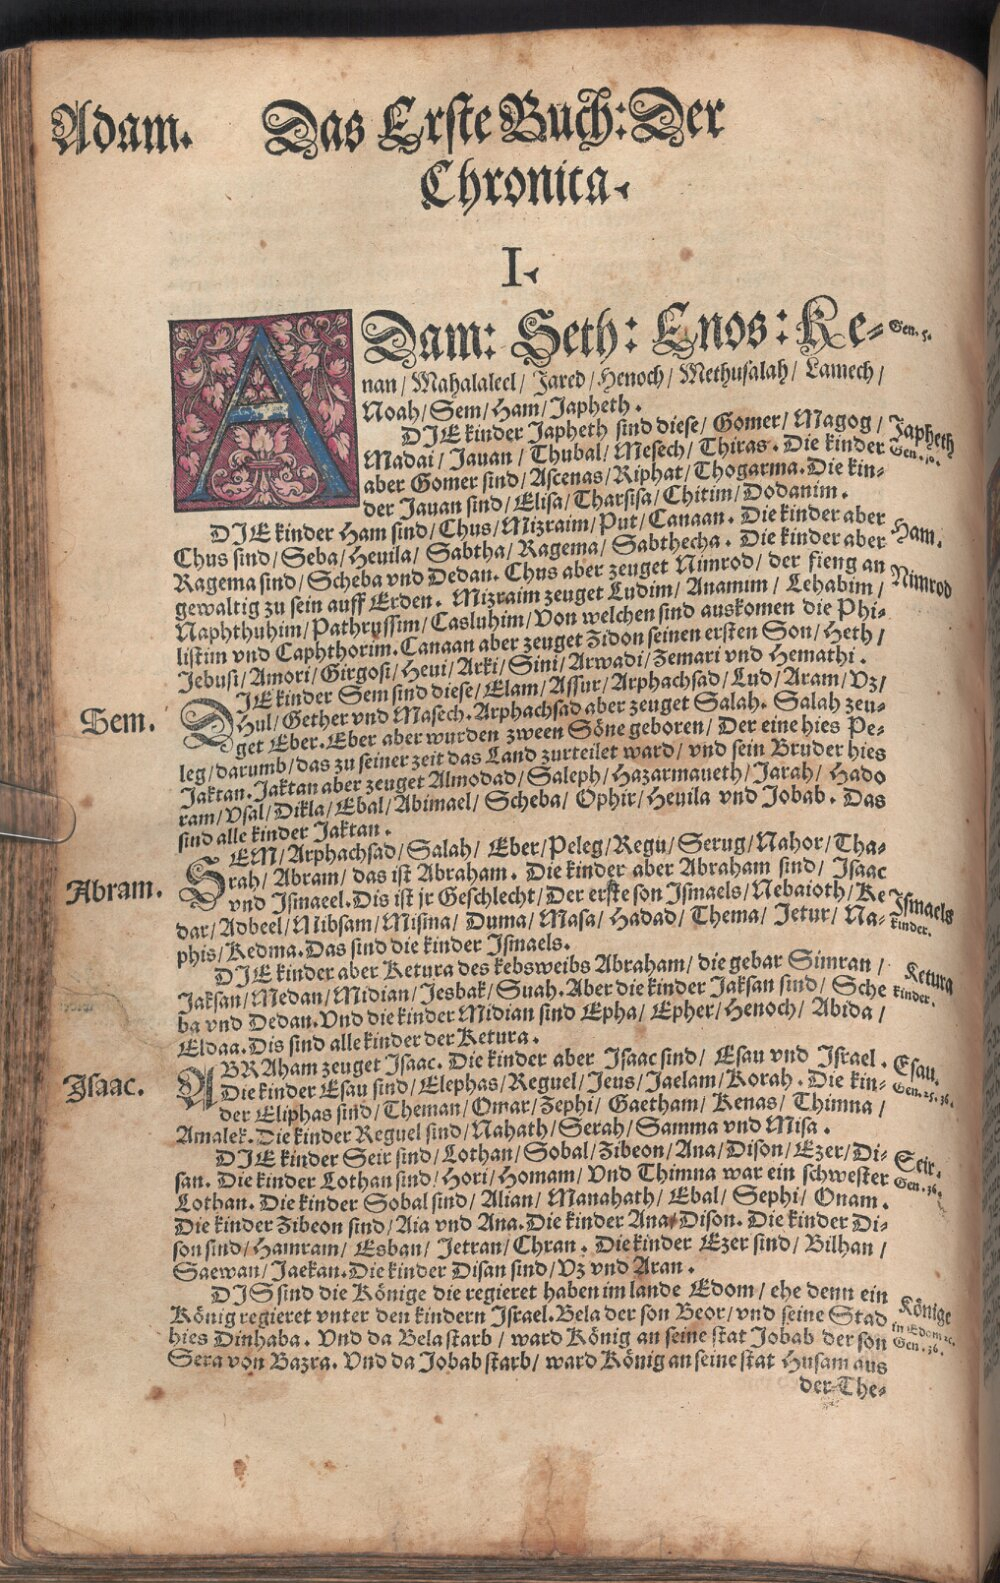 Adam.
Das Erste Buch: Der
Chronica.
I.
ADam: Seth: Enos: Ke-
Gen. 5.
nan/ Mahalaleel/ Jared/ Henoch/ Methusalah/ Lamech/
Noah/ Sem/ Ham/ Japheth.
DJE kinder Japheth sind diese/ Gomer/ Magog/
Japheth
Madai/ Jauan/ Thubal/ Mesech/ Thiras. Die kinder
Gen. 10.
aber Gomer sind/ Ascenas/ Riphat/ Thogarma. Die kin-
der Jauan sind/ Elisa/ Tharsisa/ Chitim/ Dodanim.
DJE kinder Ham sind/ Chus/ Mizraim/ Put/ Canaan. Die kinder aber
Ham.
Chus sind/ Seba/ Heuila/ Sabtha/ Ragema/ Sabthecha. Die kinder aber
Ragema sind/ Scheba vnd Dedan. Chus aber zeuget Nimrod/ der fieng an
Nimrod
gewaltig zu sein auff Erden. Mizraim zeuget Ludim/ Anamim/ Lehabim/
Naphthuhim/ Pathrussim/ Casluhim/ Von welchen sind auskomen die Phi-
listim vnd Caphthorim. Canaan aber zeuget Zidon seinen ersten Son/ Heth/
Jebusi/ Amori/ Girgosi/ Heui/ Arki/ Sini/ Arwadi/ Zemari vnd Hemathi.
Sem.
DJE kinder Sem sind diese/ Elam/ Assur/ Arphachsad/ Lud/ Aram/ Vz/
Hul/ Gether vnd Masech. Arphachsad aber zeuget Salah. Salah zeu-
get Eber. Eber aber wurden zween Söne geboren/ Der eine hies Pe-
leg/ darumb/ das zu seiner zeit das Land zurteilet ward/ vnd sein Bruder hies
Jaktan. Jaktan aber zeuget Almodad/ Saleph/ Hazarmaueth/ Jarah/ Hado
ram/ Vsal/ Dikla/ Ebal/ Abimael/ Scheba/ Ophir/ Heuila vnd Jobab. Das
sind alle kinder Jaktan.
Abram.
SEM/ Arphachsad/ Salah/ Eber/ Peleg/ Regu/ Serug/ Nahor/ Tha-
rah/ Abram/ das ist Abraham. Die kinder aber Abraham sind/ Isaac
vnd Ismaeel. Dis ist jr Geschlecht/ Der erste son Ismaels/ Nebaioth/ Ke
Ismaels
kinder.
dar/ Adbeel/ Mibsam/ Misma/ Duma/ Masa/ Hadad/ Thema/ Jetur/ Na-
phis/ Kedma. Das sind die kinder Ismaels.
DJE kinder aber Ketura des kebsweibs Abraham/ die gebar Simran/
Ketura
kinder.
Jaksan/ Medan/ Midian/ Jesbak/ Suah. Aber die kinder Jaksan sind/ Sche
ba vnd Dedan. Vnd die kinder Midian sind Epha/ Epher/ Henoch/ Abida/
Eldaa. Dis sind alle kinder der Ketura.
Isaac.
ABRAham zeuget Isaac. Die kinder aber Isaac sind/ Esau vnd Israel.
Esau.
Die kinder Esau sind/ Elephas/ Reguel/ Jeus/ Jaelam/ Korah. Die kin-
Gen. 25. 36.
der Eliphas sind/ Theman/ Omar/ Zephi/ Gaetham/ Kenas/ Thimna/
Amalek. Die kinder Reguel sind/ Nahath/ Serah/ Samma vnd Misa.
DJE kinder Seir sind/ Lothan/ Sobal/ Zibeon/ Ana/ Dison/ Ezer/ Di-
Seir.
san. Die kinder Lothan sind/ Hori/ Homam/ Vnd Thimna war ein schwester
Gen. 36.
Lothan. Die kinder Sobal sind/ Alian/ Manahath/ Ebal/ Sephi/ Onam.
Die kinder Zibeon sind/ Aia vnd Ana. Die kinder Ana/ Dison. Die kinder Di-
son sind/ Hamram/ Esban/ Jetran/ Chran. Die kinder Ezer sind/ Bilhan/
Saewan/ Jaekan. Die kinder Disan sind/ Vz vnd Aran.
DJS sind die Könige die regieret haben im lande Edom/ ehe denn ein
Könige
König regieret vnter den kindern Israel. Bela der son Beor/ vnd seine Stad
in Edom ꝛc.
hies Dinhaba. Vnd da Bela starb/ ward König an seine stat Jobab der son
Gen. 36.
Sera von Bazra. Vnd da Jobab starb/ ward König an seine stat Husam aus
der The-